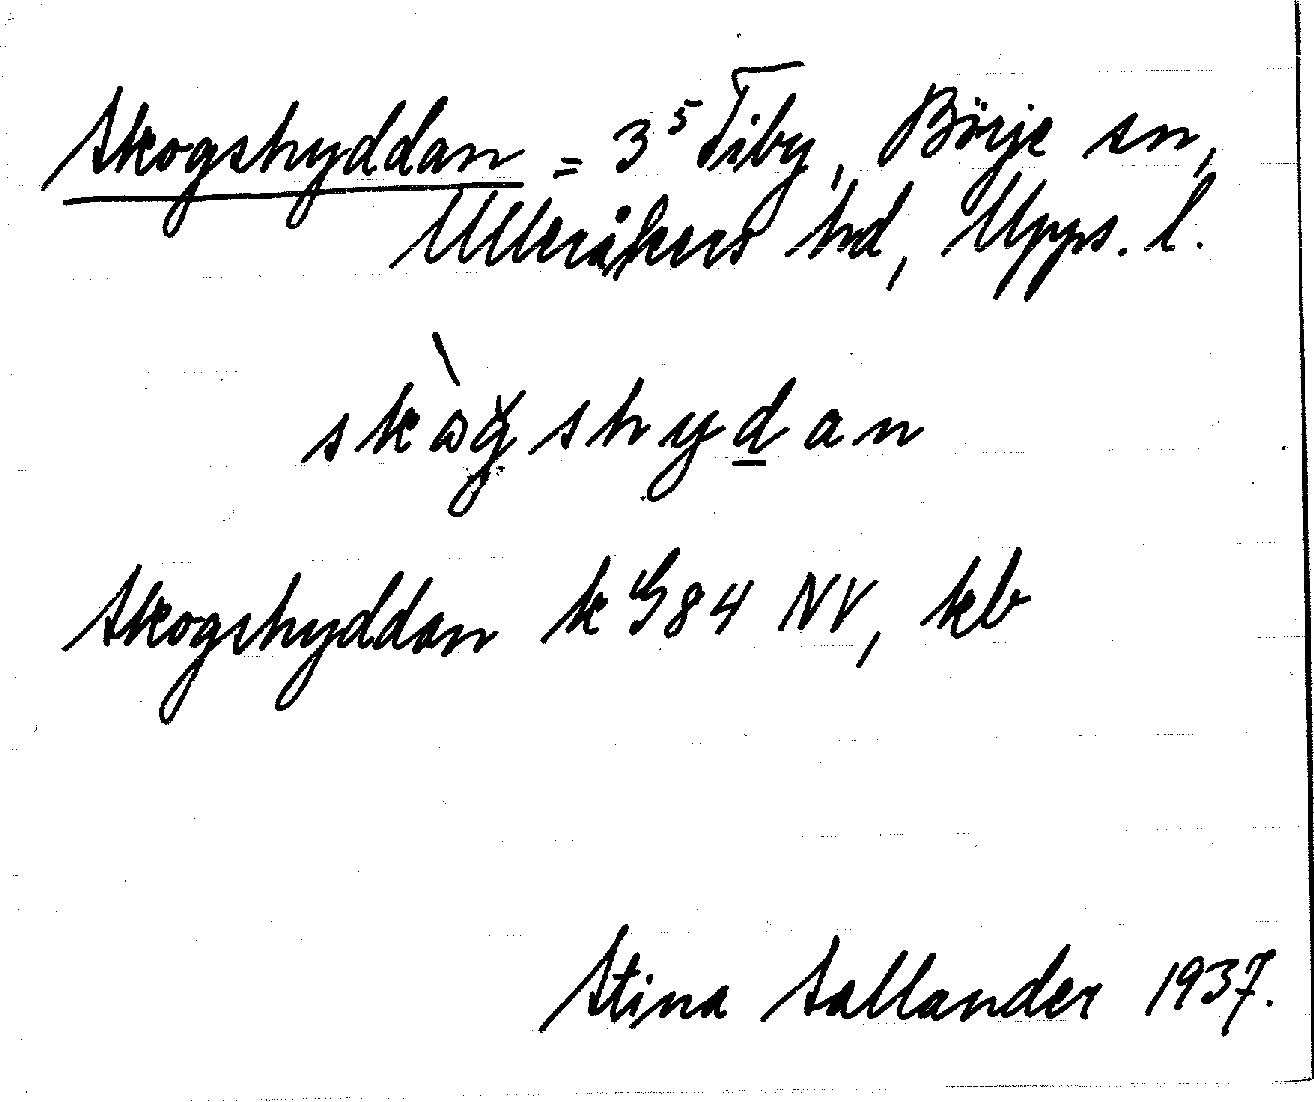 Skogshyddan = 3⁵ Tiby, Börje sn,
Ulleråkers hd, Upps. l.
skògshydan
Skogshyddan k G84 NV, kb
Stina Sallander 1937.